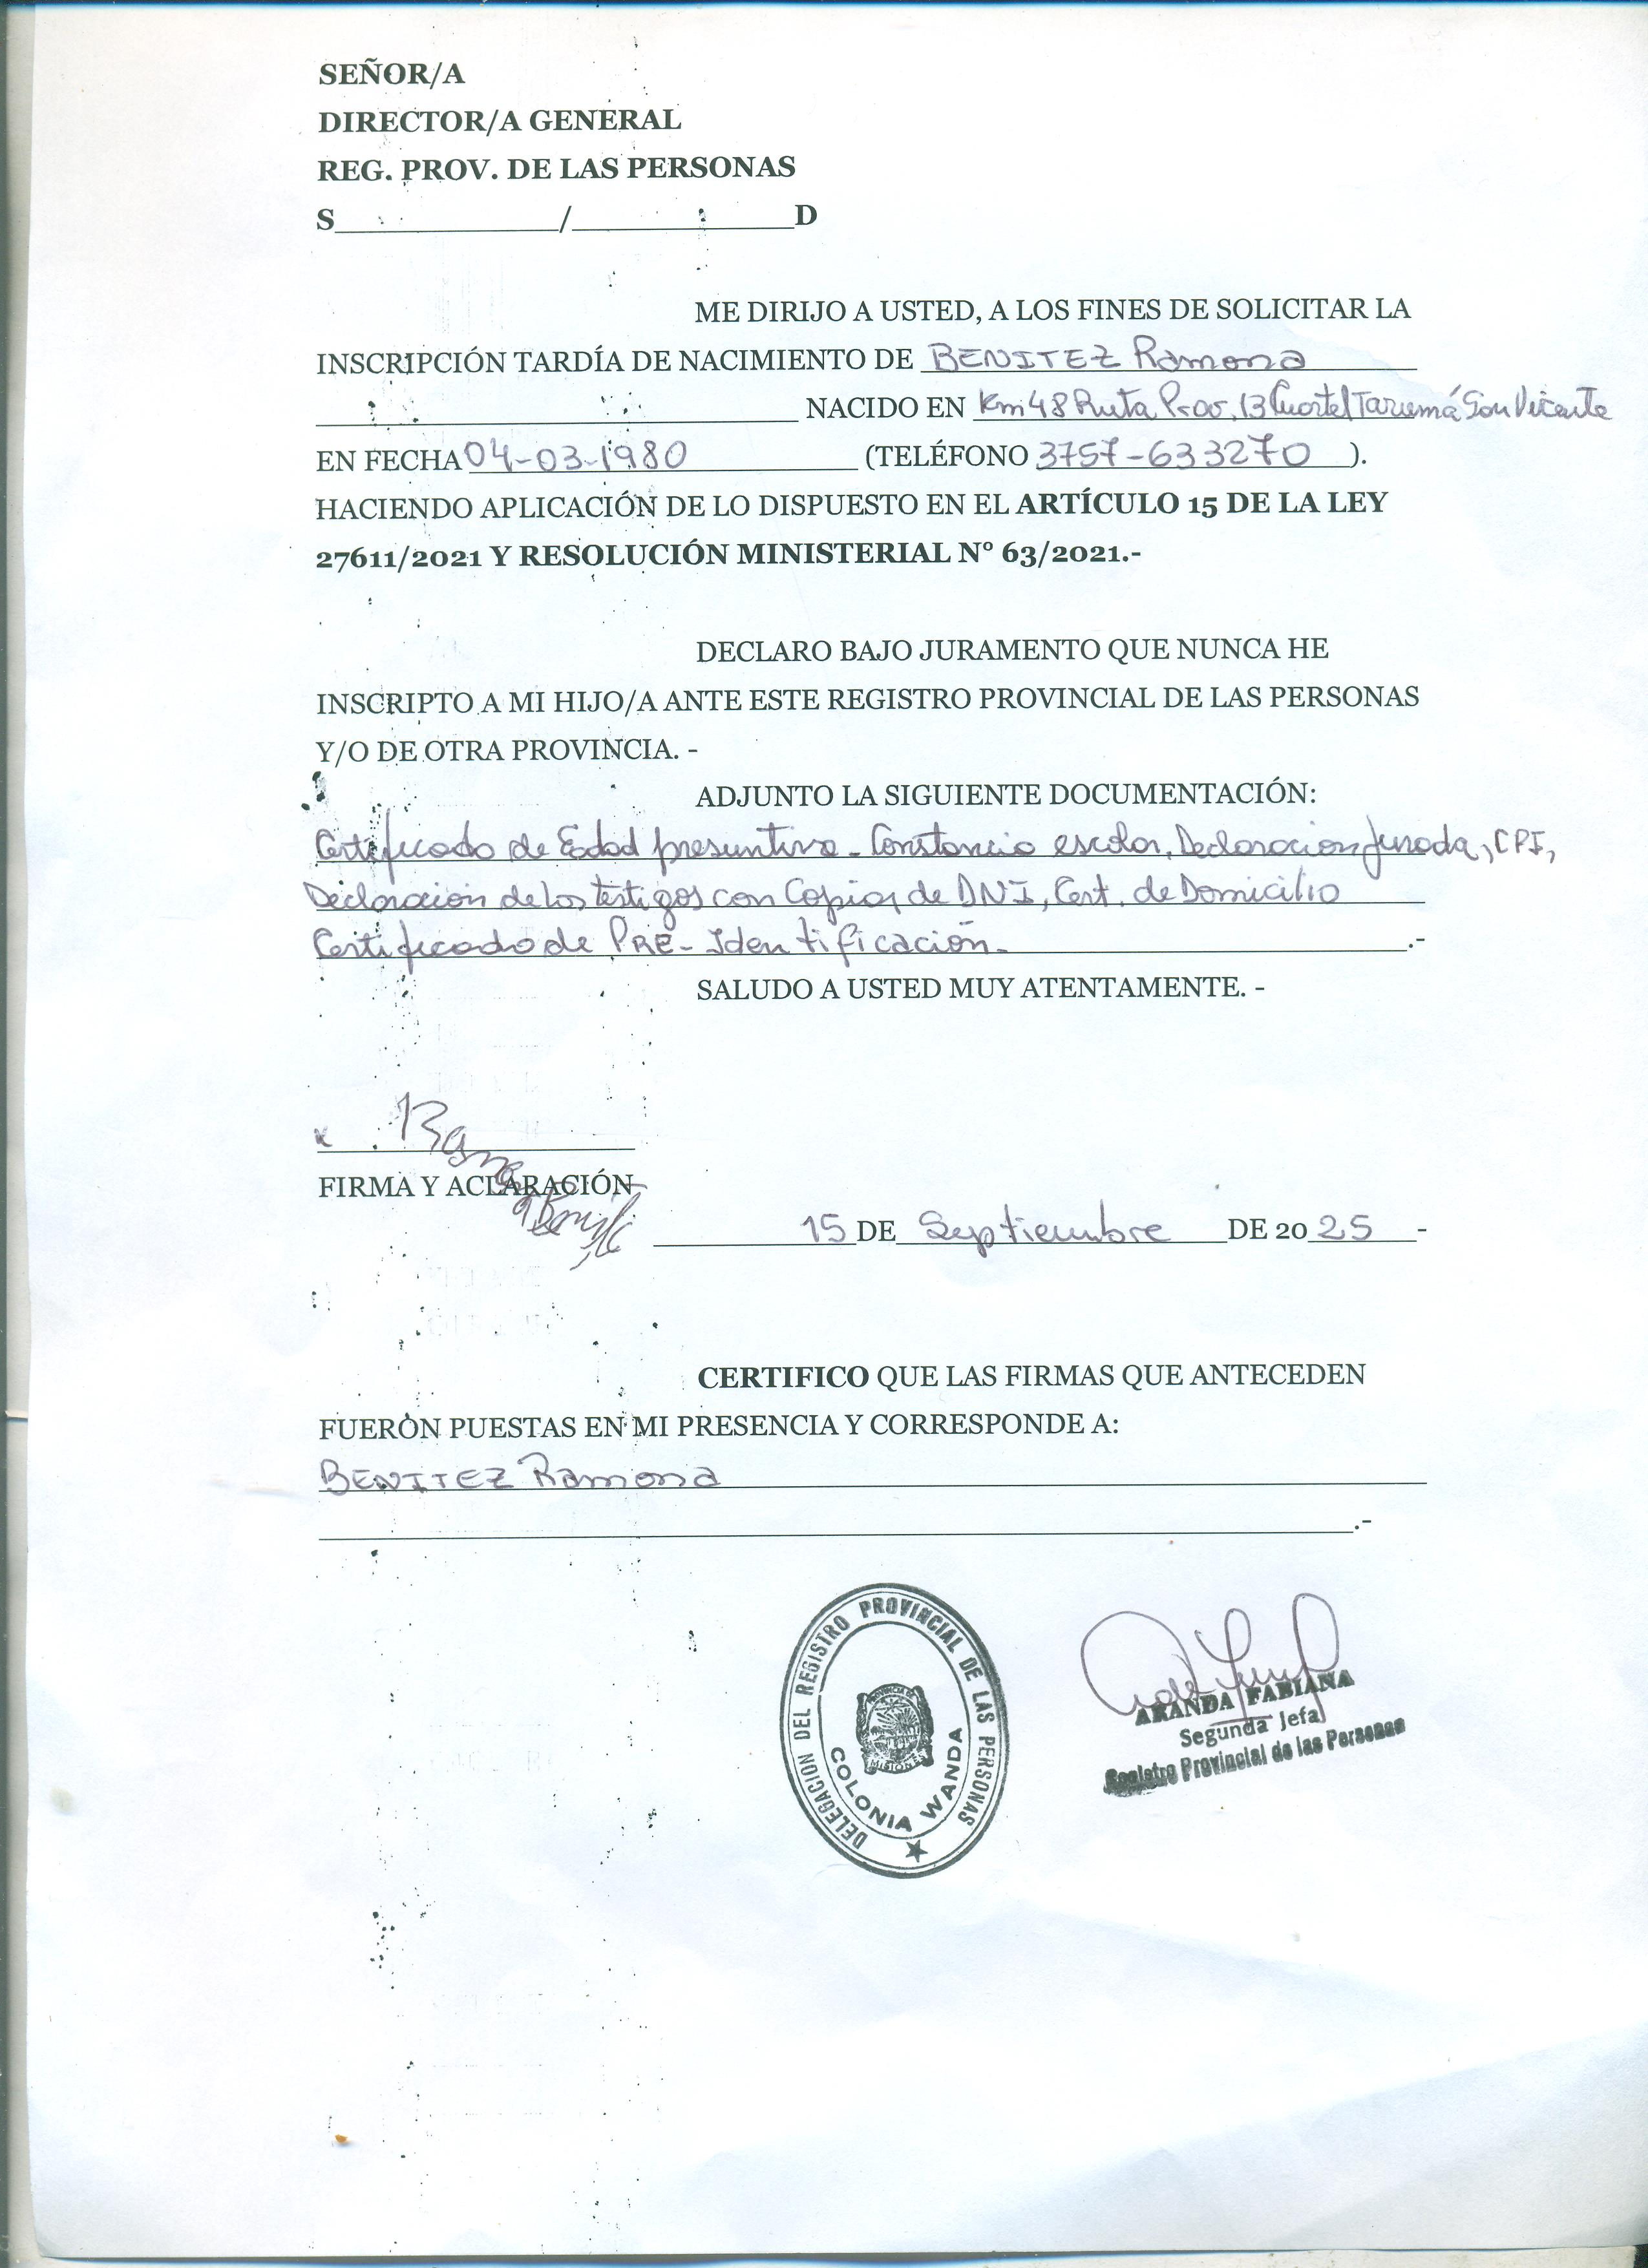 SEÑOR/A
DIRECTOR/A GENERAL
REG. PROV. DE LAS PERSONAS
S______________/______________D
ME DIRIJO A USTED, A LOS FINES DE SOLICITAR LA
INSCRIPCIÓN TARDÍA DE NACIMIENTO DE BENITEZ Ramona
NACIDO EN Km 48 Ruta Prov. 13 Cuartel Tarumá San Vicente
EN FECHA 04-03-1980 (TELÉFONO 3757-633270 ).
HACIENDO APLICACIÓN DE LO DISPUESTO EN EL ARTÍCULO 15 DE LA LEY
27611/2021 Y RESOLUCIÓN MINISTERIAL N° 63/2021.-
DECLARO BAJO JURAMENTO QUE NUNCA HE
INSCRIPTO A MI HIJO/A ANTE ESTE REGISTRO PROVINCIAL DE LAS PERSONAS
Y/O DE OTRA PROVINCIA. -
ADJUNTO LA SIGUIENTE DOCUMENTACIÓN:
Certificado de Edad presuntiva - Constancia escolar, Declaracion Jurada, CPI,
Declaracion de los testigos con Copias de DNI, Cert. de Domicilio
Certificado de PRE-Identificación.- .-
SALUDO A USTED MUY ATENTAMENTE. -
Ramona
Benitez
FIRMA Y ACLARACIÓN
15 DE Septiembre DE 2025 -
CERTIFICO QUE LAS FIRMAS QUE ANTECEDEN
FUERON PUESTAS EN MI PRESENCIA Y CORRESPONDE A:
BENITEZ Ramona
.-
DELEGACION DEL REGISTRO PROVINCIAL DE LAS PERSONAS
MISIONES
COLONIA WANDA
ARANDA FABIANA
Segunda Jefa
Registro Provincial de las Personas